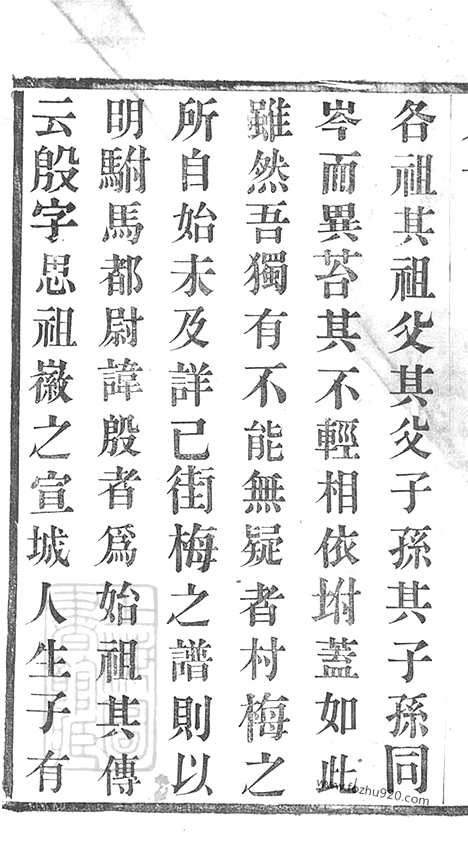 各祖其祖父其父子孫其子孫同
岑而異苔其不輕相依坿蓋如此
雖然吾獨有不能無疑者村梅之
所自始未及詳已街梅之譜則以
明駙馬都尉諱殷者爲始祖其傳
云殷字思祖徽之宣城人生子有
www.fozhu920.com